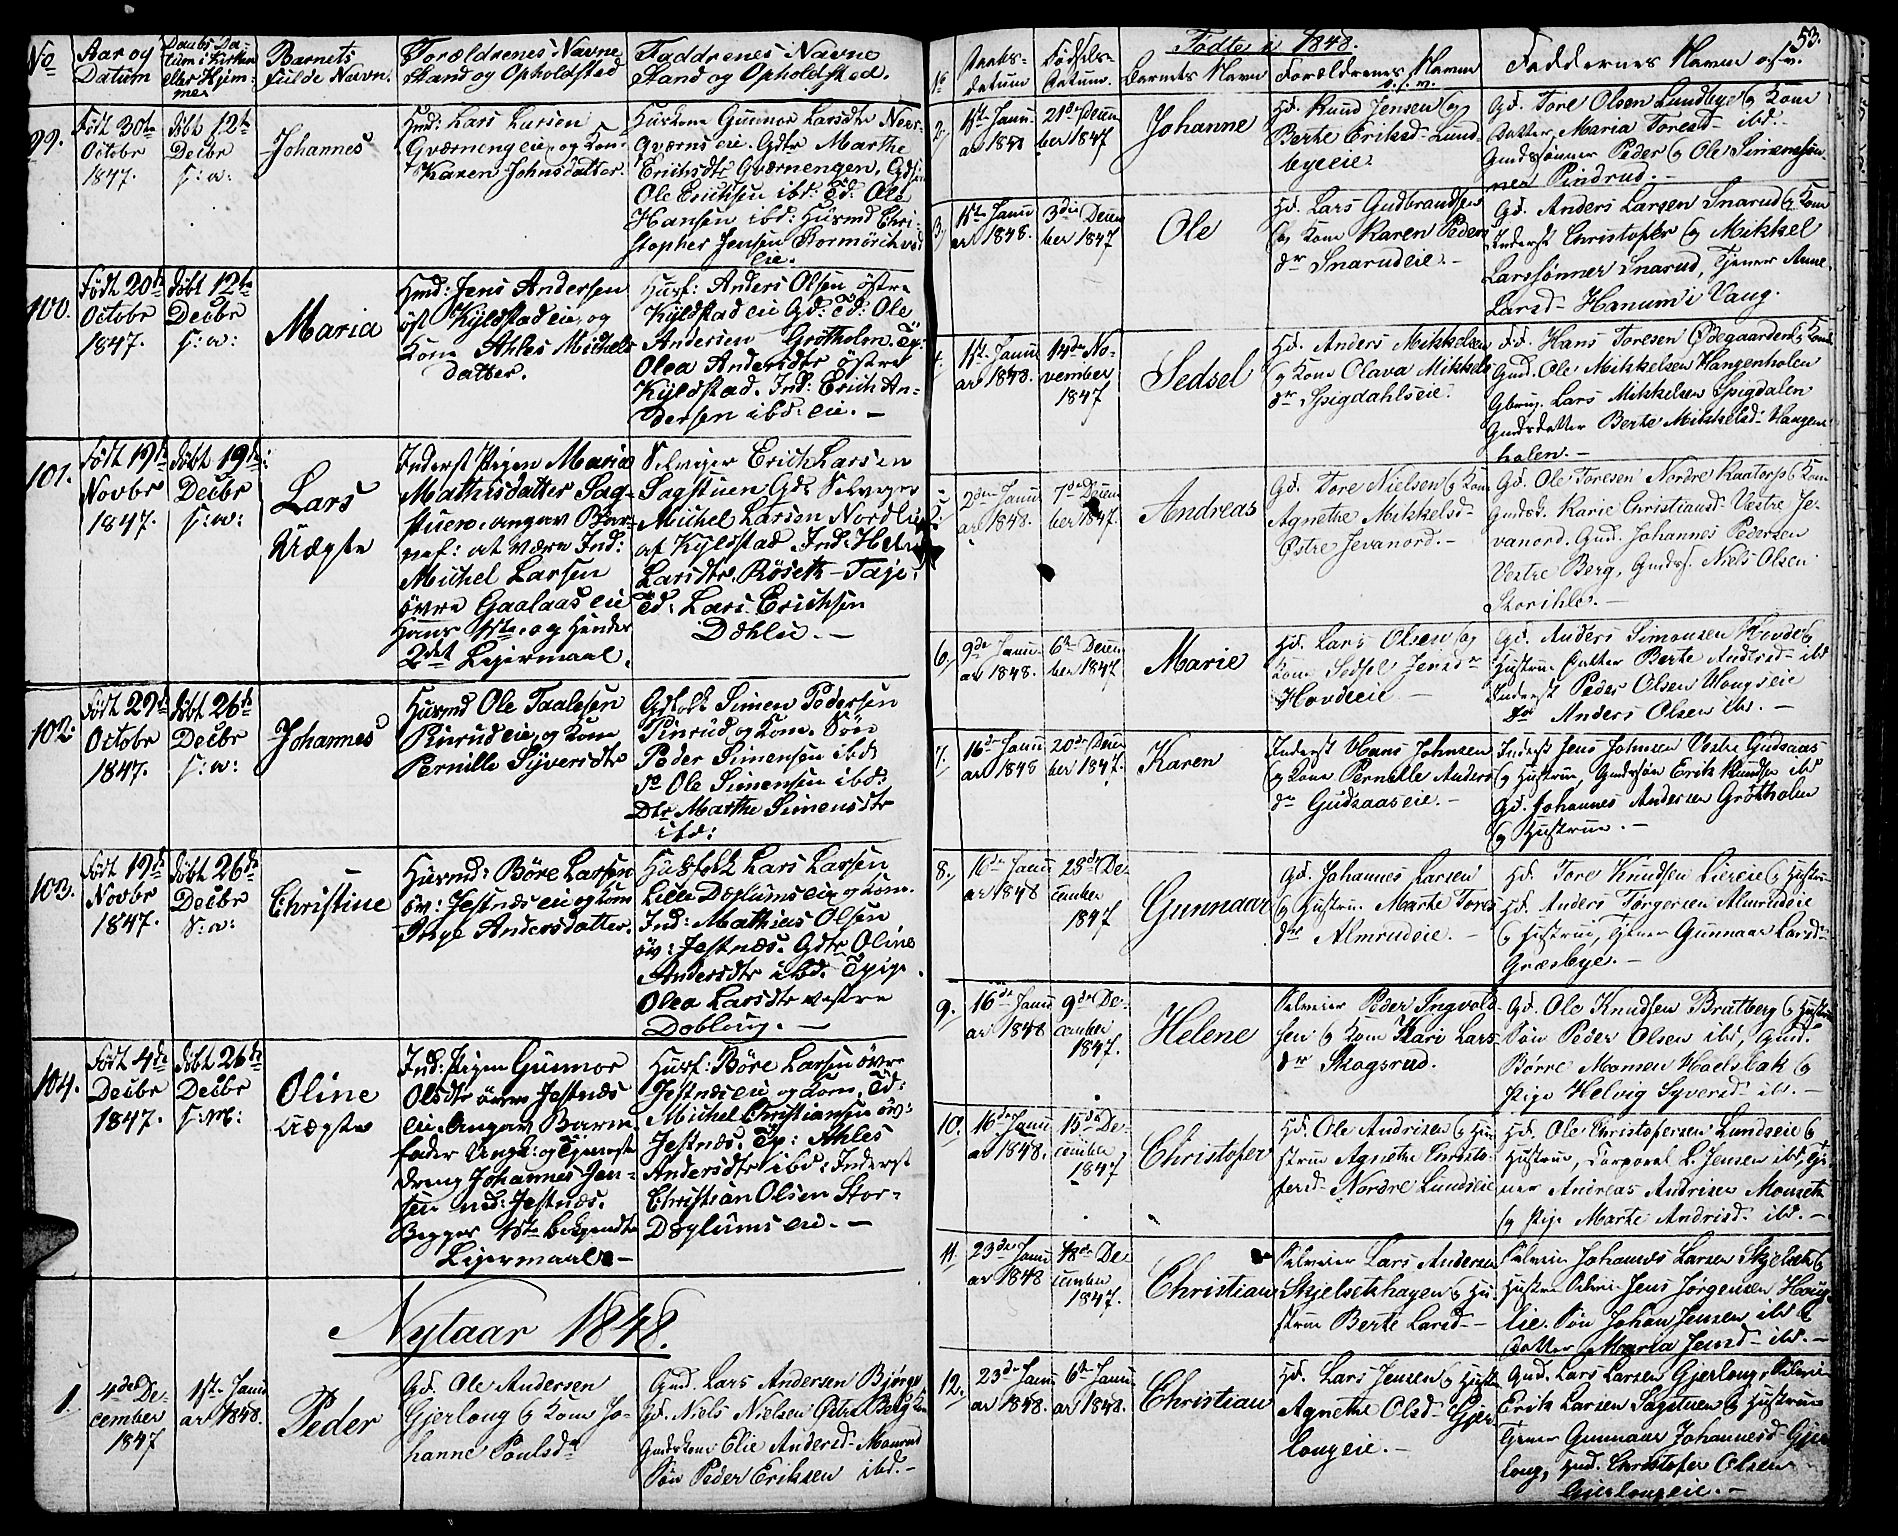 No
Aar og
Datum
Daabs Da-
tum i Kirken
eller Hjem-
met
Barnets
fulde Navn
Forældrenes Navne
Stand og Opholdsted
Faddrenes Navne
Stand og Opholdsted.
99.
Født 30te
Octobr
1847.
døbt 12te
Decbr
s: a:
Johannes
Hmd: Lars Larsen
Qværnengeie, og Kon-
e Karen Johnsdatter.
Huskone Gunnor Larsdtr
Qværnseie. Gdtr Marthe
Erichsdtr Qværnengen.
Ole Erichsen ibd: Td: Ole
Hansen ibd: Husmd Chri-
stopher Jensen
eie.
100.
Født 20de
Octobr
1847.
døbt 12te
Decbr
s: a:
Maria
Hmd: Jens Andersen
øst Kylstadeie og
Kone Ahles Michels
datter.
Husf: Anders Olsen østre
Kyldstadeie Gd: Td: Ole
Andersen Grøtholm Tp:
Olea Andersdtr østre
Kyldstad. Ind: Erich An-
dersen ibd: eie. —
101.
Født 19de
Novbr
1847.
døbt 19de
Decbr
s: a:
Lars
Uægte
Inderst Pigen Maria
Mathisdatter Sag-
stuen, angav Bar-
nef: at være Ind:
Michel Larsen
øvre Gaalaas eie
Hans 1ste og hendes
2det Leiermaal.
Selveier Erich Larsen
Sagstuen Gd: Selveier
Michel Larsen Nordlie
af Kyldstad. Ind:
Larsdtr. Røseth— Taje:
Td: Lars Erichsen
Dæhlie. —
102:
Født 29de
Octobr
1847.
døbt 26de
Decbr
s: a:
Johannes
Husmd Ole Taalesen
Pinrudeie, og Kone
Pernille Syversdtr
Gdfolk Simen Pedersen
Pinrud og Kone. Søn
Peder Simensen ibd:
So Ole Simensen ibd:
Dtr Marthe Simensdtr
ibd:
103.
Født 19de
Novbr
1847.
døbt 26de
Decbr
s: a:
Christine
Husmd: Böre Larsen
öv: Jestnæs eie og Kone
Inge Andersdatter.
Husfolk Lars Larsen
Lille Doglumseie, og Kone.
Ind: Mathias Olsen
öv: Jestnæs. Gdtr Oline
Andersdtr ibd. Tpige
Olea Larsdtr vestre
Dobloug. —
104.
Født 4de
Decbr
1847.
døbt 26de
Decbr
Oline
Uægte
Ind: Pigen Gunnor
Olsdtr övre Jestnæs
eie. Angav Barne-
fader Ungk: og Tjeneste
dreng Johannes Jen-
sen Jestnæs.
Begges 1ste bekjendte
Leiermaal. —
Husf: Böre Larsen övre
Jestnæs eie og Kone, Td:
Michel Christiansen öv:
Jestnæs. Tp: Ahles
Andersdtr ibd: Inderst
Christian Olsen Stor-
Doglumseie. —
Nytaar 1848.
1.
4de De-
cember
1847
1ste Janu
ar 1848.
Peder
Gd. Ole Andersen
Gjerloug og Kone Jo-
hanne Poulsdr
Gmd. Lars Andersen
Gd. Niels Nielsen Østre Berg
Gaardkone Elie Andersd— Monrud
Søn Peder Eriksen ibd. —
Fødte i 1848.
53.
No
Daabs-
datum
Fødsels-
Datum.
Barnets Navn
Forældrenes Navne
o.s.v.
Faddernes Navne osv.
2.
1ste Janu-
ar 1848
21de Decem
ber 1847
Johanne
Hd. Knud Jensen og
Berte Eriksd— Lund-
byeeie.
Gd. Tore Olsen Lundbye og Kone
Datter Maria Toresd— ibd.
Gaardssønner Peder og Ole Simensøn-
ner Pindrud. —
3.
1ste Janu
ar 1848.
3die Decem
ber 1847
Ole
Hd. Lars Gudbrandsen
og Kone Karen Peders
dr Snarudeie. —
Gd. Anders Larsen Snarud og Kone
Inderst Christofer og Mikkel
Larssønner Snarud, Tjener Anne
Larsd— Hanum i Vang.
4.
1ste Janu
ar 1848.
14de No-
vember
1847
Sedsel
Hd. Anders Mikkelsen
og Kone Olava Mikkels
dr Spigdahlseie.
Hans Toresen Ødegaarden og Kone
Gmd. Ole Mikkelsen Hangenholen
Gbrug. Lars Mikkelsen Spigdalen
Gaardsdatter Berte Mikkelsd— Hangen
holen. —
5.
2den Janu
ar 1848.
7de Decem
ber 1847.
Andreas
Gd. Tore Nielsen og Kone
Agnethe Mikkelsd—
Østre Jevanord. —
Gd. Ole Toresen Nordre Kaatorp og Kone
Karie Christiansd— Vestre Je-
vanord. Gmd. Johannes Pedersen
Vestre Berg, Gaards. Niels Olsen
Storihle. —
6.
9de Janu-
ar 1848.
6te Decem
ber 1847
Marie
Hd. Lars Olsen og
Kone Sedsel Jensdr
Hovdeeie —
Gd. Anders Simonsen Hovde og
Hustrue Datter Berte Andersd— ibd
Inderst Peder Olsen
Anders Olsen ibd. —
7.
16de Janu
ar 1848
20de Decem
ber 1847.
Karen
Inderst Hans Johnsen
og Kone Pernelle Anders
dr Gudsaaseie. —
Inderst Jens Johnsen Vestre Gudsaas
og Hustrue, Gaardssøn Erik Knudsen ibd
Gd. Johannes Andersen Grøtholm
og Hustrue. —
8.
16de Janu
ar 1848
28de De-
cember
1847
Gunnaar
Gd. Johannes Larsen
og Hustrue Marte Tores
dr Almrudeie. —
Hd. Tore Knudsen Liereie og Hustrue
Hd. Anders Torgersen Almrudeie
og Hustrue, Tjener Gunnaar Larsd—
Græsbye. —
9.
16de Janu
ar 1848
9de De-
cember
1847.
Helene
Selveier Peder Ingvold-
sen og Kone Kari Lars
dr Skogsrud.
Gd. Ole Knudsen Brutberg og Hustrue
Søn Peder Olsen ibd, Gmd.
Børre Monsen Hoelsbak og
Pige Helvig Syversd— ibd. —
10.
16de Janu
ar 1848.
15de De-
cember
1847
Christofer
Hd. Ole Andrisen og Hu-
strue Agnethe Christo-
fersd— Nordre Lundseie
Hd. Ole Christofersen Lundseie og
Hustrue, Corporal L. Jensen ibd, Tje-
ner Andreas Andrisen Monseth
og Pige Marte Andrisd— ibd. —
11.
23de Janu
ar 1848
18de De-
cember
1847.
Christian
Selveier Lars Andersen
Skjelsethagen og Hu-
strue Berte Larsd—
Selveier Johannes Larsen Skjelseth og
Hustrue Selvei. Jens Jørgensen Houg-
lie. Søn Johan Jensen ibd og
Datter Maria Jensd— ibd. —
12.
23de Janu
ar 1848.
6te Janu
ar 1848.
Christian
Hd. Lars Jensen og Hustru
Agnethe Olsd— Gjer
lougeie. —
Gmd. Lars Larsen Gjerloug, Selveier
Erik Larsen Sagstuen og Hustrue
Tjener Gunnaar Johannesd— Gjer
loug, Gmd. Christofer Olsen
Gjerlougeie. —